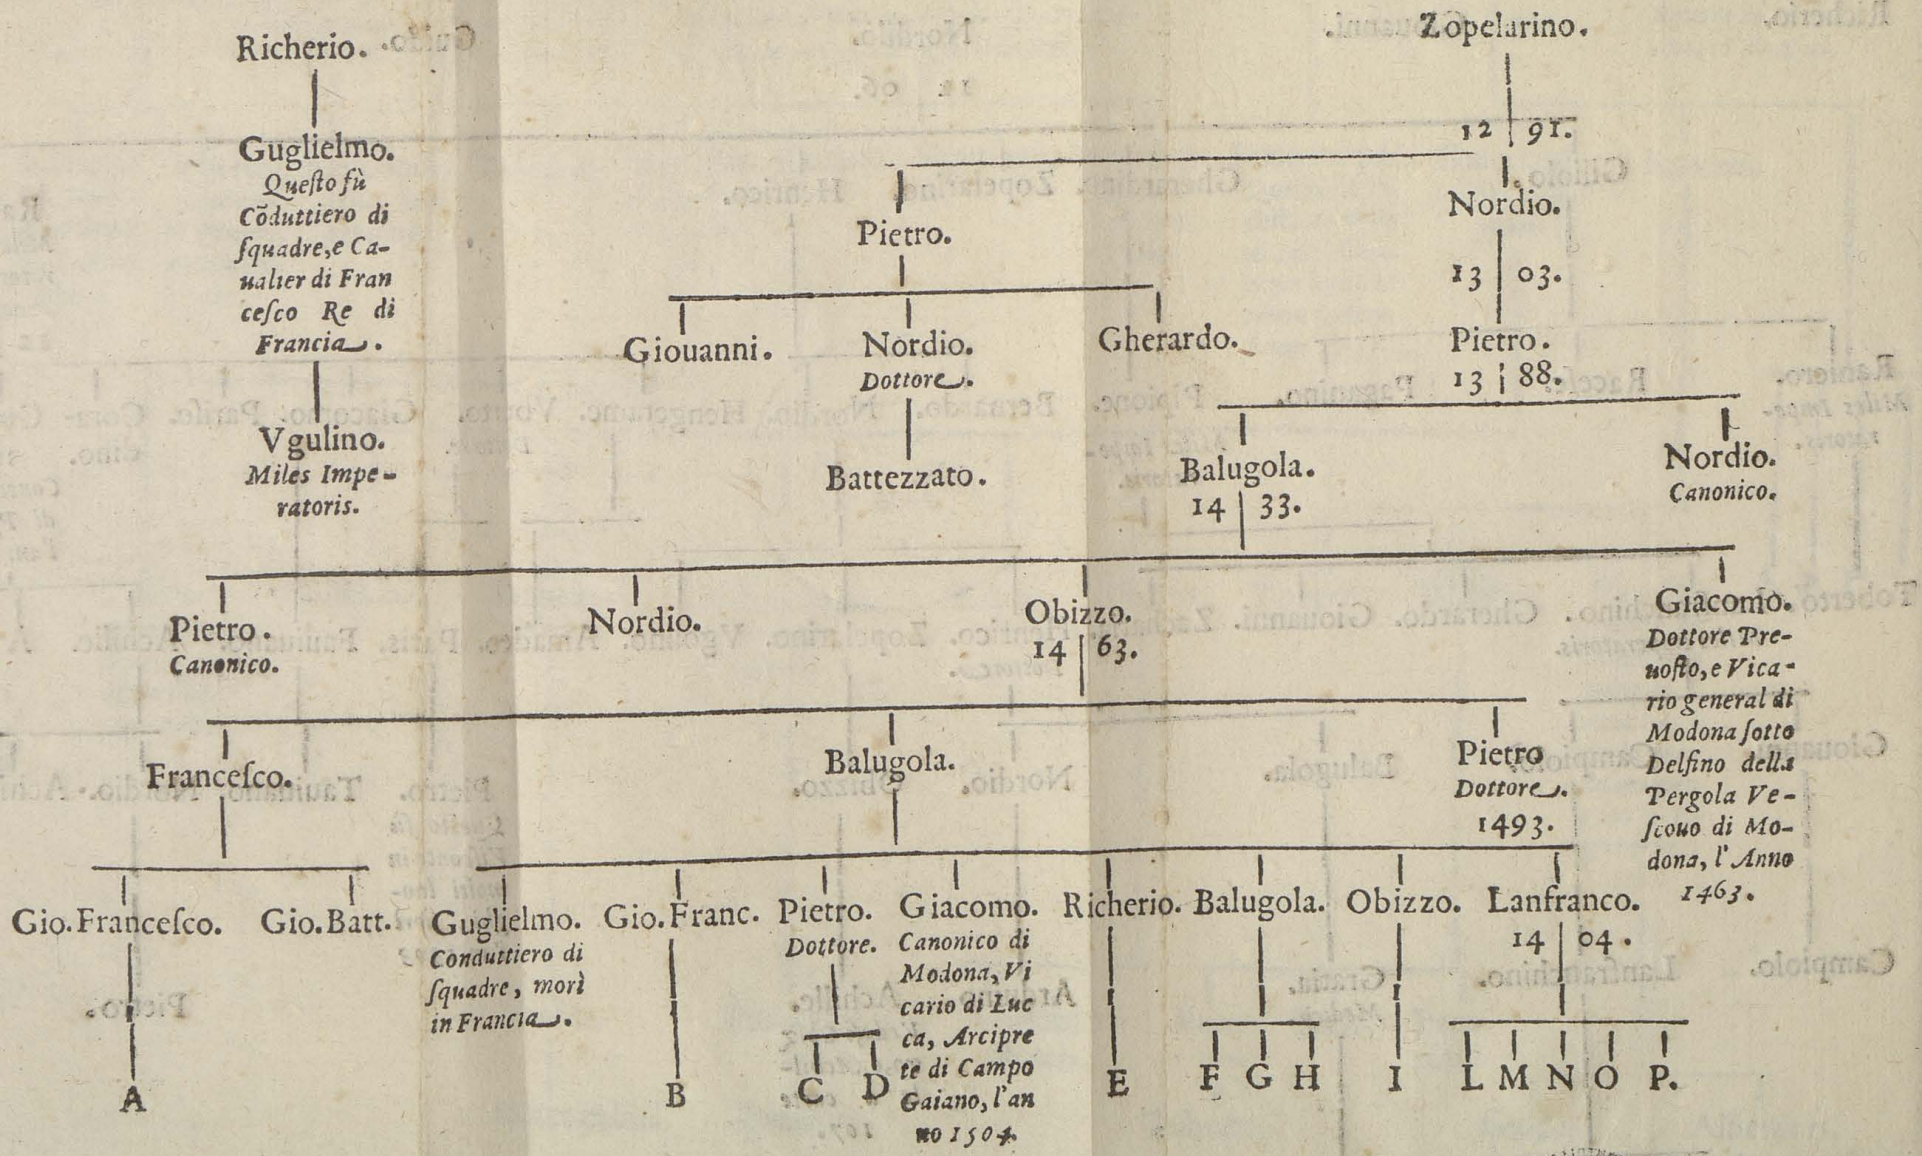 Richerio.
Guglielmo.
Queſto fù
Cõduttiero di
ſquadre, e Ca-
ualier di Fran
ceſco Re di
Francia.
Vgulino.
Miles Impe-
ratoris.
Zopelarino.
12 91.
Pietro.
Nordio.
13 03.
Giouanni.
Nordio.
Dottore.
Gherardo.
Pietro.
13 88.
Battezzato.
Balugola.
14 33.
Nordio.
Canonico.
Pietro.
Canonico.
Nordio.
Obizzo.
14 63.
Giacomo.
Dottore Pre-
uoſto, e Vica-
rio general di
Modona ſotto
Delfino della
Pergola Ve-
ſcouo di Mo-
dona, l'Anno
1463.
Franceſco.
Balugola.
Pietro
Dottore.
1493.
Gio. Franceſco.
Gio. Batt.
Guglielmo.
Conduttiero di
ſquadre, morì
in Francia.
Gio. Franc.
Pietro.
Dottore.
Giacomo.
Canonico di
Modona, Vi
cario di Luc
ca, Arcipre
te di Campo
Gaiano, l'an
no 1504.
Richerio.
Balugola.
Obizzo.
Lanfranco.
14 04.
A B C D E F G H I L M N O P.